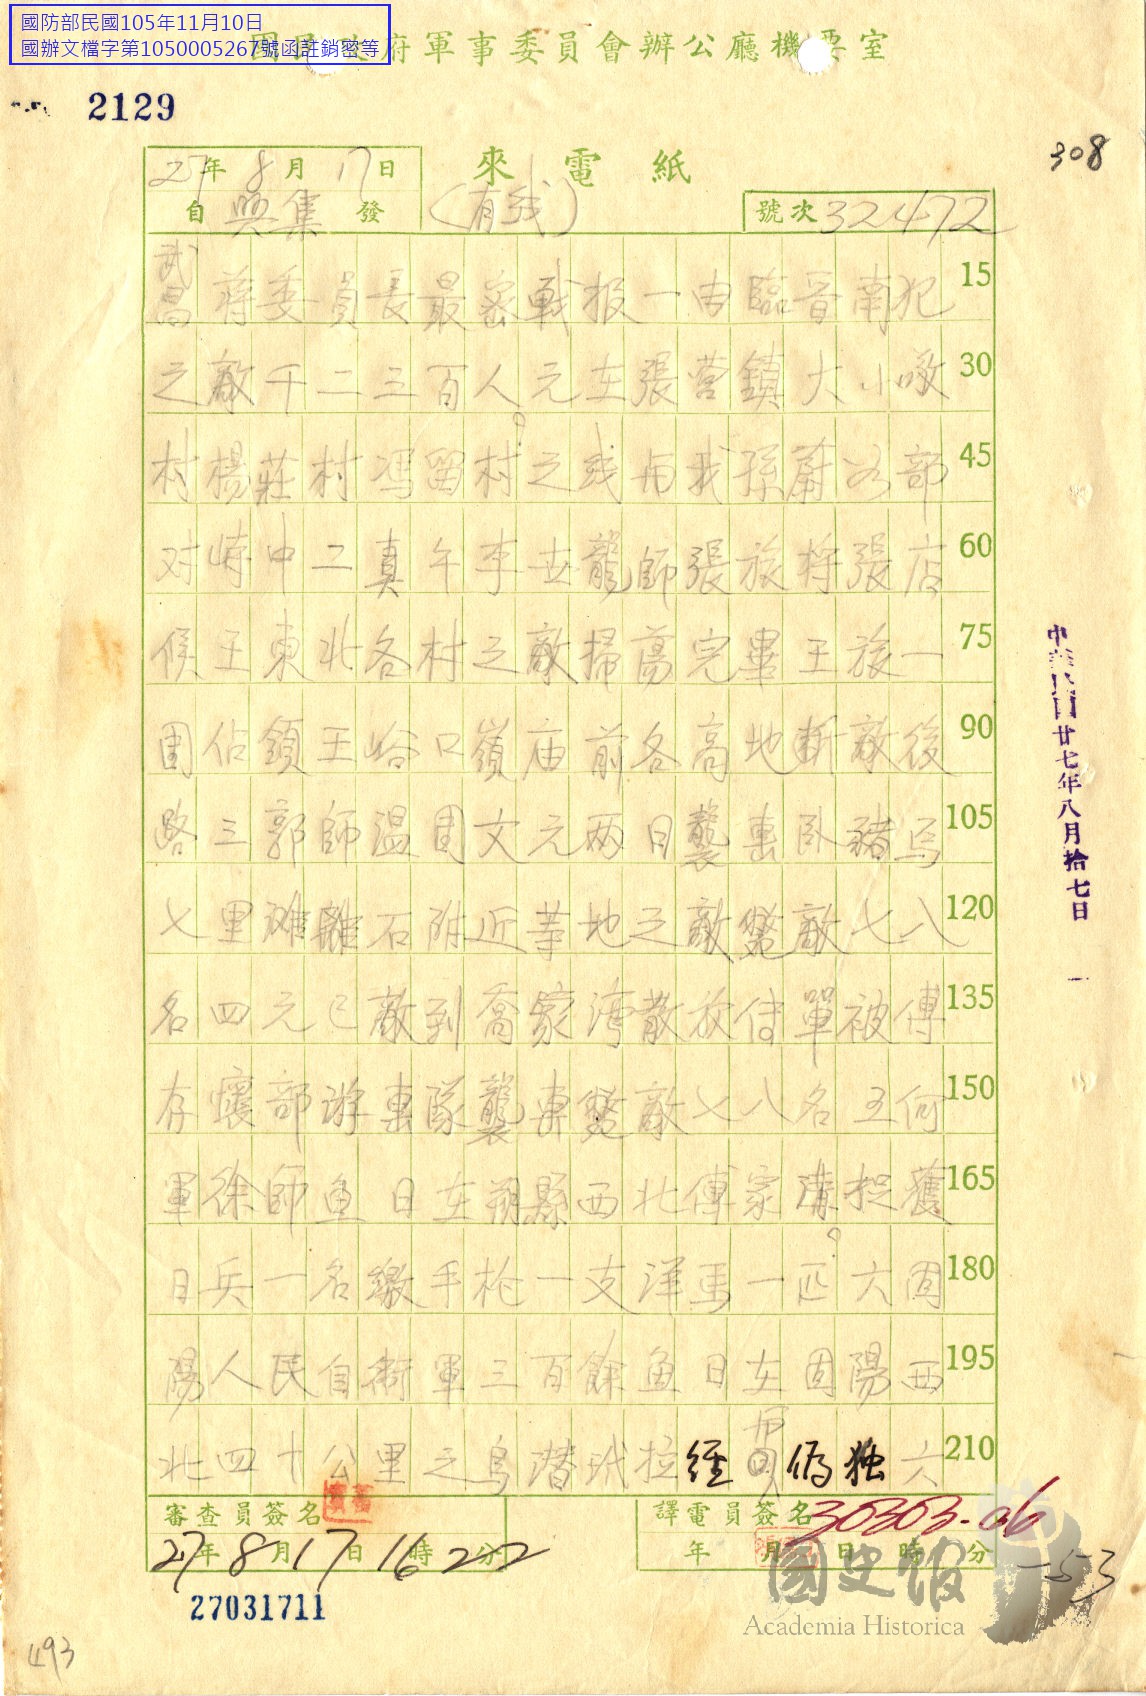 國防部民國105年11月10日
國辦文檔字第1050005267號函註銷密等
國民政府軍事委員會辦公廳機要室
2129
308
27年8月17日
來電紙
自興集發
(有线)
號次32472
武昌蔣委員長最密戰报一由臨晉南犯 15
之敵千二三百人元在張营鎮大小嗷 30
村楊莊村馮留村之线与我孫蔚如部 45
对峙中二真午李世龍師張旅将張店 60
侯王東北各村之敵掃蕩完畢王旅一 75
團佔鎖王峪口嶺庙前各高地断敵後 90
路三郭師温團文元两日襲击卧豬焉 105
七里滩離石附近等地之敵斃敵七八 120
名四元巳敵到喬家湾散放传單被傅 135
存懷部游击隊襲击斃敵七八名五何 150
軍徐師魚日在朔縣西北傅家溝捉獲 165
日兵一名繳手枪一支洋馬一匹六固 180
陽人民自衛軍三百餘魚日在固陽西 195
北四十公里之烏潜玳拉經 伪独六 210
審查員簽名
譯電員簽名 30303.06
27年8月17日16時22分
年月日時分
-53
27031711
493
中華民國廿七年八月拾七日
國史館
Academia Historica